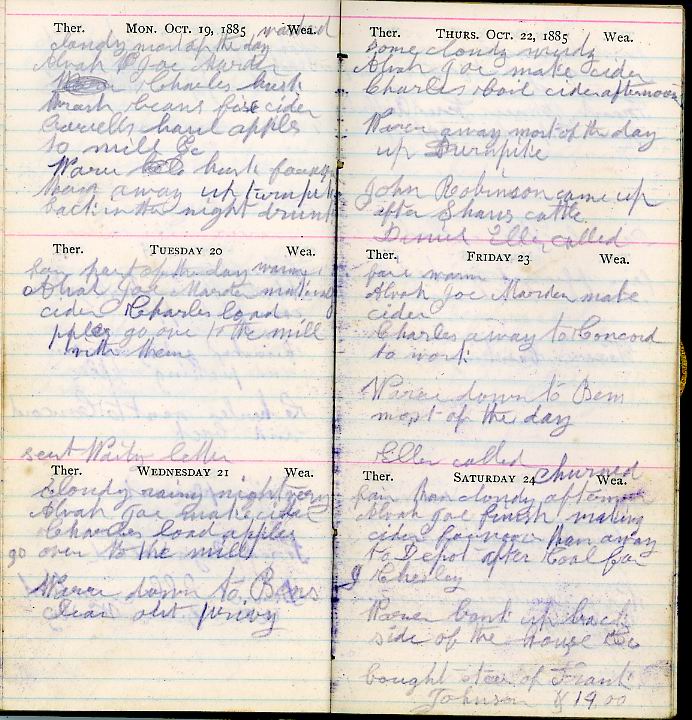 Ther. MON. OCT. 19, 1885 Wea.
washed
cloudy most of the day
Alvah & Joe Marden
& Charles husk
thrash beans for cider
haul apples
to mill &c
husk
away up turnpike
back in the night drunk
Ther. TUESDAY 20 Wea.
fair part of the day warm
Alvah Joe Marden making
cider Charles load
apples go over to the mill
with them
sent letter
Ther. WEDNESDAY 21 Wea.
cloudy rainy night
Alvah Joe make cider
Charles load apples
go over to the mill
down to Bens
clean out privy
Ther. THURS. OCT. 22, 1885 Wea.
some cloudy windy
Alvah Joe make cider
Charles boil cider afternoon
away most of the day
up Turnpike
John Robinson came up
after Shaws cattle
Ellen called
Ther. FRIDAY 23 Wea.
fair warm
Alvah Joe Marden make
cider
Charles away to Concord
to work
down to Bens
most of the day
Ellen called
churned
Ther. SATURDAY 24 Wea.
fair then cloudy afternoon
Alvah Joe finish making
cider away
to Depot after Coal for
Charley
bank up back
side of the house &c
bought steer of Frank
Johnson $19.00